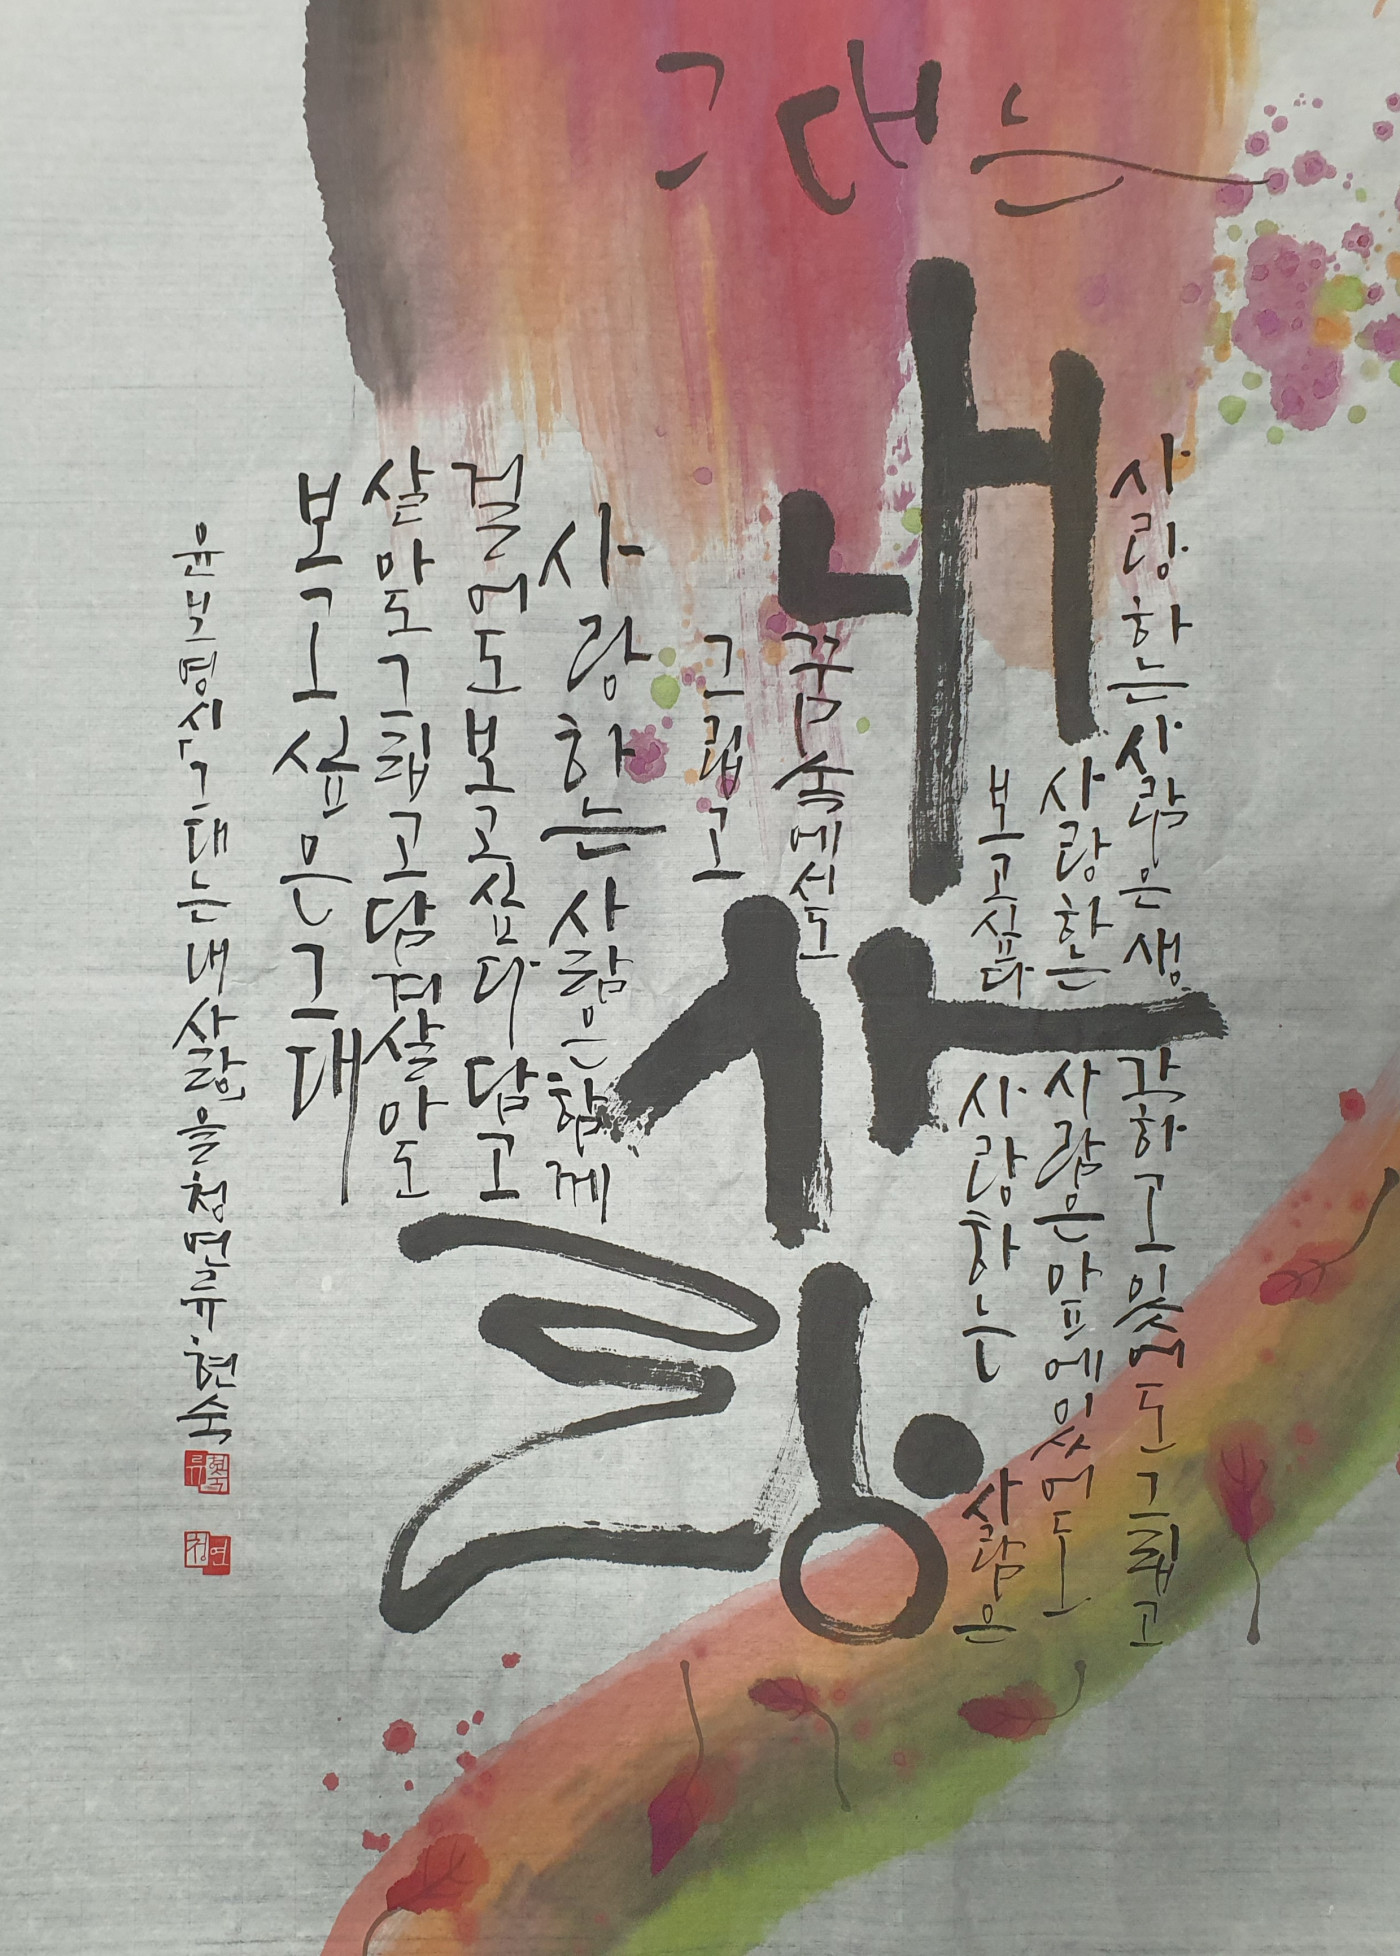 그대는
내
사랑
사랑하는 사람은 생각하고 있어도 그립고
사랑하는 사람은 앞에 있어도
보고싶다 사랑하는 사람은
꿈속에서도
그립고
사랑하는 사람은 함께
걸어도 보고싶다 담고
살아도 그립고 담겨 살아도
보고싶은 그대
윤보영 시 「그대는 내 사랑」을 청연 류현숙
류현숙
청연